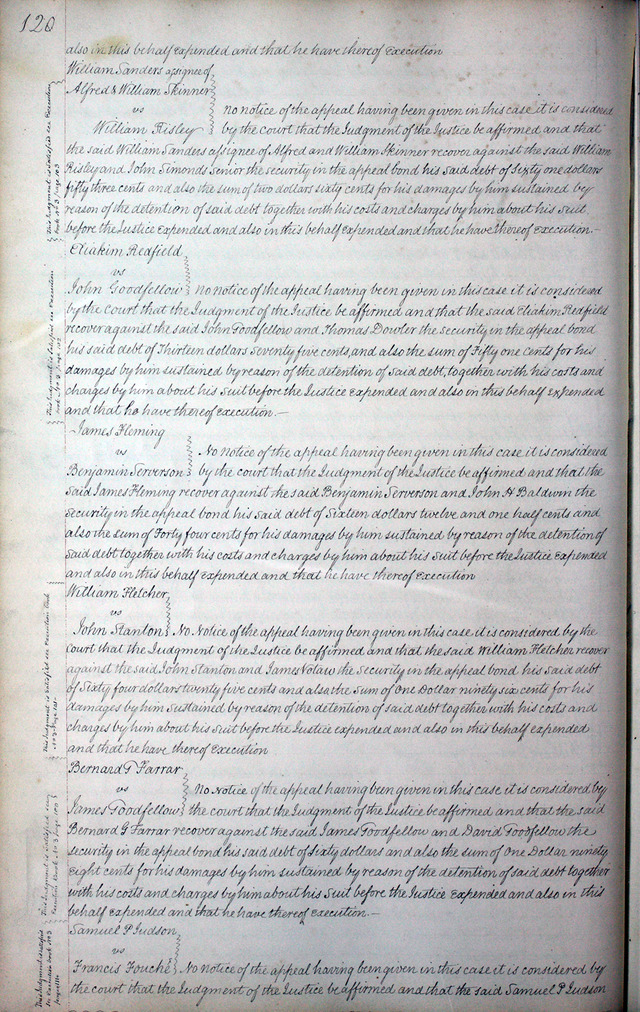 120
also in this behalf expended and that he have thereof Execution
William Sanders assignee of
Alfred & William Skinner
vs no notice of the appeal having been given in this case it is considered
William Risley by the court that the Judgment of the Justice be affirmed and that
the said William Sanders assignee of Alfred and William Skinner recover against the said William
Risley and John Simonds Senior the security in the appeal bond his said debt of Sixty one dollars
fifty three cents and also the sum of two dollars sixty cents for his damages by him sustained by
reason of the detention of said debt together with his costs and charges by him about his Suit
before the Justice Expended and also in this behalf expended and that he have thereof execution.—
Eliakim Redfield
vs
John Goodfellow no notice of the appeal having been given in this case it is considered
by the court that the Judgment of the Justice be affirmed and that the said Eliakim Redfield
recover against the said John Goodfellow and Thomas Dowler the security in the appeal bond
his said debt of Thirteen dollars Seventy five cents, and also the sum of Fifty one cents for his
damages by him sustained by reason of the detention of Said debt, together with his costs and
charges by him about his Suit before the Justice Expended and also in this behalf Expended
and that he have thereof execution.—
James Fleming
vs No Notice of the appeal having been given in this case it is considered
Benjamin Serverson by the court that the Judgment of the Justice be affirmed and that the
Said James Fleming recover against the said Benjamin Serverson and John H Baldwin the
security in the appeal bond his said debt of Sixteen dollars twelve and one half cents and
also the sum of Forty four cents for his damages by him sustained by reason of the detention of
said debt together with his costs and charges by him about his Suit before the Justice Expended
and also in this behalf expended and that he have thereof Execution
William Fletcher
vs
John Stanton No Notice of the appeal having been given in this case it is considered by the
Court that the Judgment of the Justice be affirmed and that the said William Fletcher recover
against the said John Stanton and James the security in the appeal bond his said debt
of Sixty four dollars twenty five cents and also the Sum of One Dollar ninety six cents for his
damages by him Sustained by reason of the detention of said debt together with his costs and
charges by him about his Suit before the Justice Expended and also in this behalf expended
and that he have thereof Execution
Bernard G Farrar
vs No Notice of the appeal having been given in this case it is considered by
James Goodfellow the court that the Judgment of the Justice be affirmed and that the said
Bernard G Farrar recover against the said James Goodfellow and David Goodfellow the
security in the appeal bond his said debt of Sixty dollars and also the sum of One Dollar ninety
Eight cents for his damages by him sustained by reason of the detention of said debt together
with his costs and charges by him about his Suit before the Justice Expended and also in this
behalf expended and that he have thereof execution.—
Samuel P Judson
vs
Francis Fouche No Notice of the appeal having been given in this case it is considered by
the court that the Judgment of the Justice be affirmed and that the said Samuel P Judson
This Judgment is Satisfied see Execution
This Judgment is Satisfied see Execution
This Judgment is Satisfied see Execution Book
This Judgment is Satisfied see
Execution Book
This Judgment is Satisfied